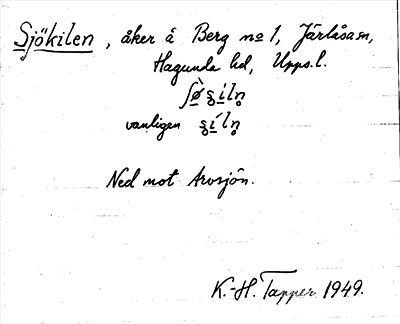 Sjökilen, åker å Berg no 1, Järlåsa sn,
Hagunda hd, Upps. l.
vanligen
Ned mot Arvsjön.
K.-H. Tapper 1949.